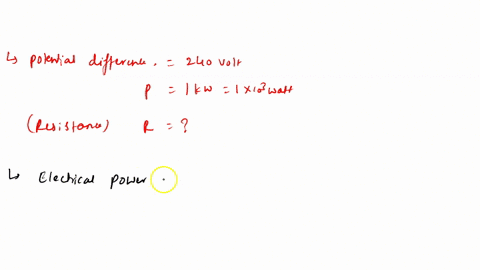 ↳ Potential difference. = 240 volt
P = 1 kw = 1 × 10³ watt
(Resistance) R = ?
↳ Electrical power